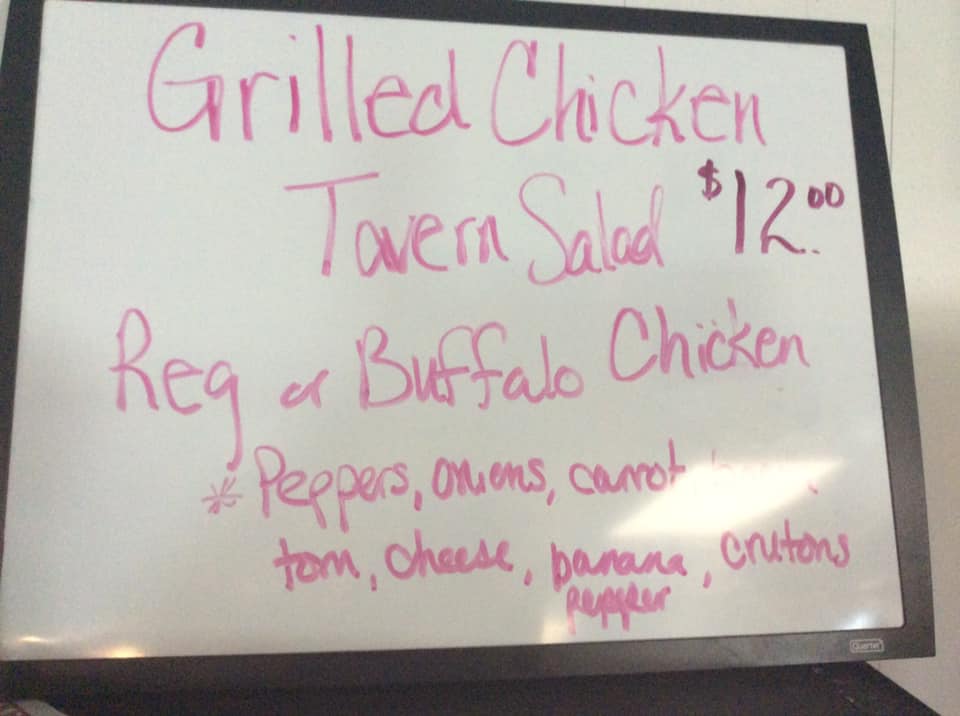 Grilled Chicken
Tavern Salad $12.00
Reg or Buffalo Chicken
* Peppers, onions, carrot
tom, cheese, banana, crutons
pepper
Quartet